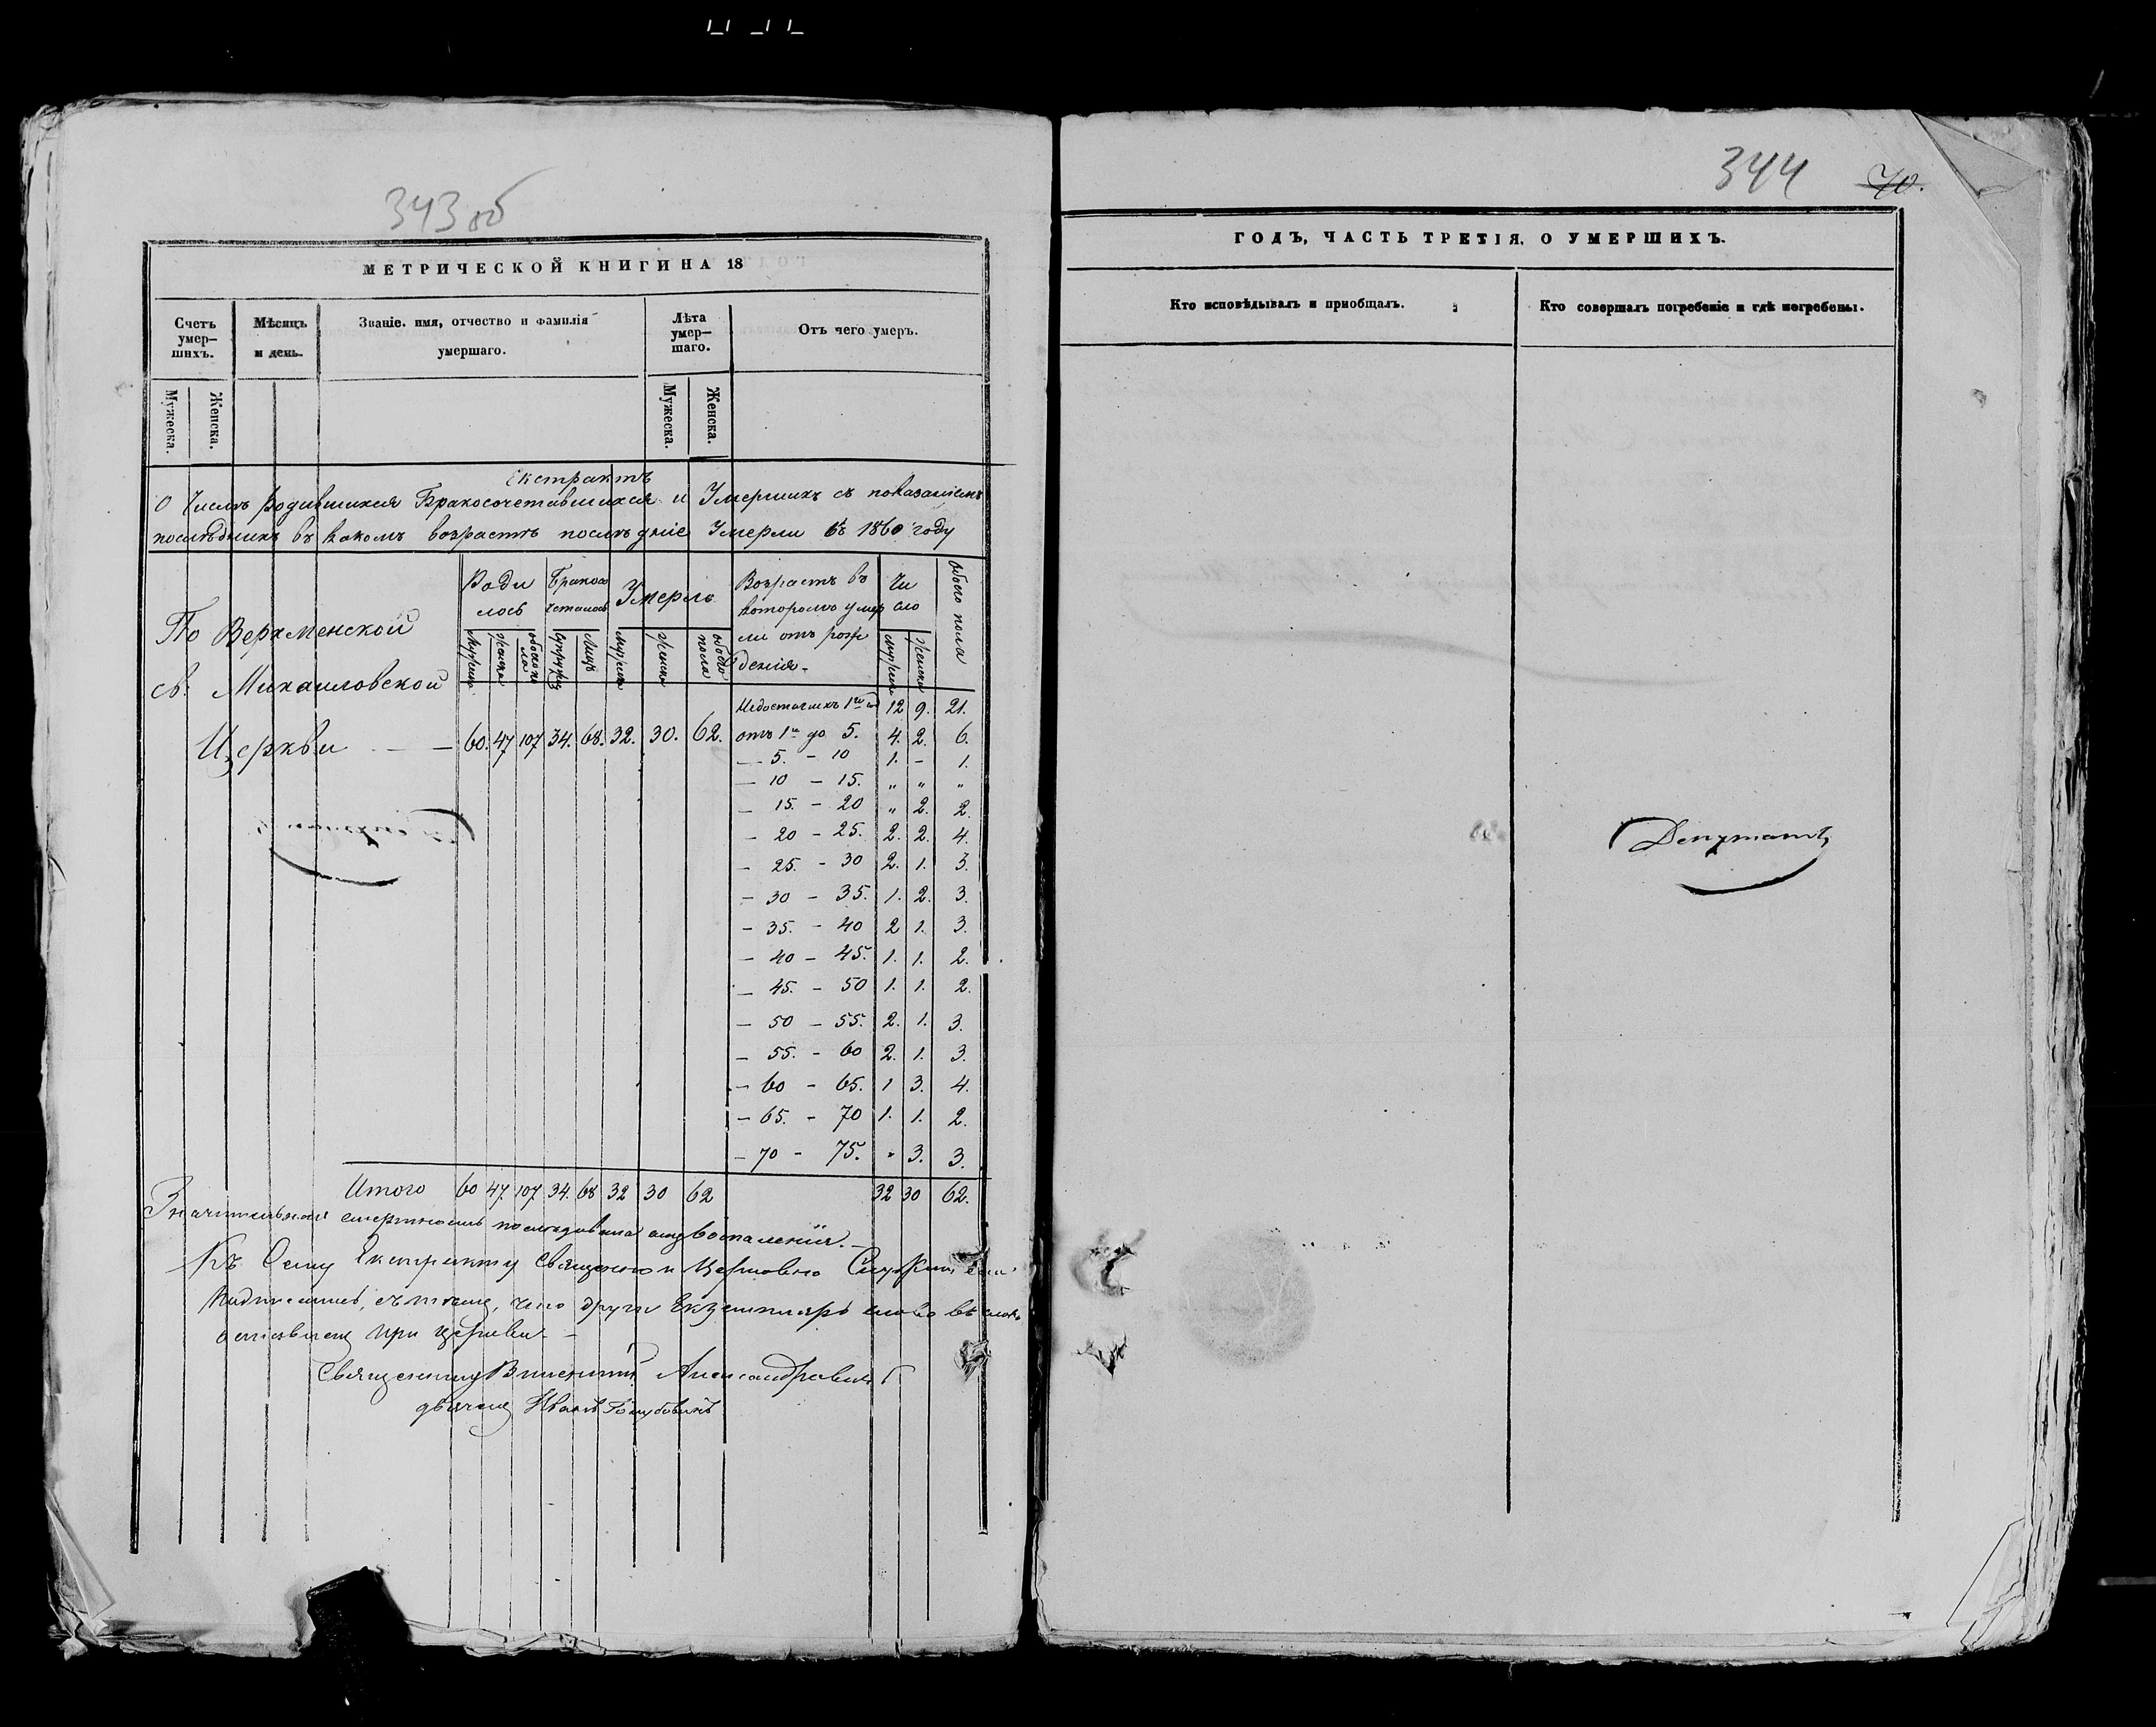 343 об
МЕТРИЧЕСКОЙ КНИГИ НА 18
Счетъ умер-шихъ.
Мѣсяцъ и день.
Званіе, имя, отчество и фамилія умершаго.
Лѣта умер-шаго.
Отъ чего умеръ.
Мужеска.
Женска.
Мужеска.
Женска.
Екстрактъ
О Числѣ Родившихся Бракосочетавшихся и Умершихъ съ показаніемъ
послѣднихъ въ какомъ возрастѣ послѣдніе Умерли въ 1860 году
Роди лось
Бракосо четалось
Умерло
Возрастъ въ которомъ умер ли отъ рож денія.
Чи сло
обоего пола
мужеска
женска
обоего пола
супруж
Лицъ
мужеска
женска
обоего пола
мужеска
женска
По Верхменской
св. Михаиловской
Церкви — — 60. 47 107 34. 68. 32. 30. 62.
Недостигшихъ 1го 12 9. 21.
отъ 1го до 5. 4. 2. 6.
— 5. – 10 1. – 1.
— 10 – 15. „ „ „
— 15. – 20 „ 2. 2.
– 20 – 25. 2. 2. 4.
– 25. – 30 2. 1. 3.
– 30 – 35. 1. 2. 3.
– 35. – 40 2 1. 3.
– 40 – 45. 1. 1. 2.
– 45. – 50 1. 1. 2.
– 50 – 55. 2. 1. 3.
– 55. – 60 2. 1. 3.
– 60 – 65. 1 3. 4.
– 65. – 70 1. 1. 2.
– 70 – 75. „ 3. 3.
Итого 60 47. 107. 34. 68 32 30 62 32 30 62.
Значительная смертность послѣдовала отъ воспаленія. –
Къ Сему Екстракту Священно и Церковно Служители
подписались, съ тѣмъ, что други Екземпляръ слово въ слово
оставленъ при церкви –
Священникъ Викентій Александровичъ
дьячекъ Иванъ Голубовичъ
344
70.
ГОДЪ, ЧАСТЬ ТРЕТІЯ, О УМЕРШИХЪ.
Кто исповѣдывалъ и пріобщалъ.
Кто совершалъ погребеніе и гдѣ погребены.
Депутатъ